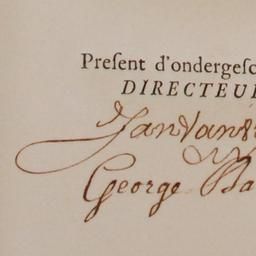 Present d'ondergesc
DIRECTEU
Jan Van
George Ba